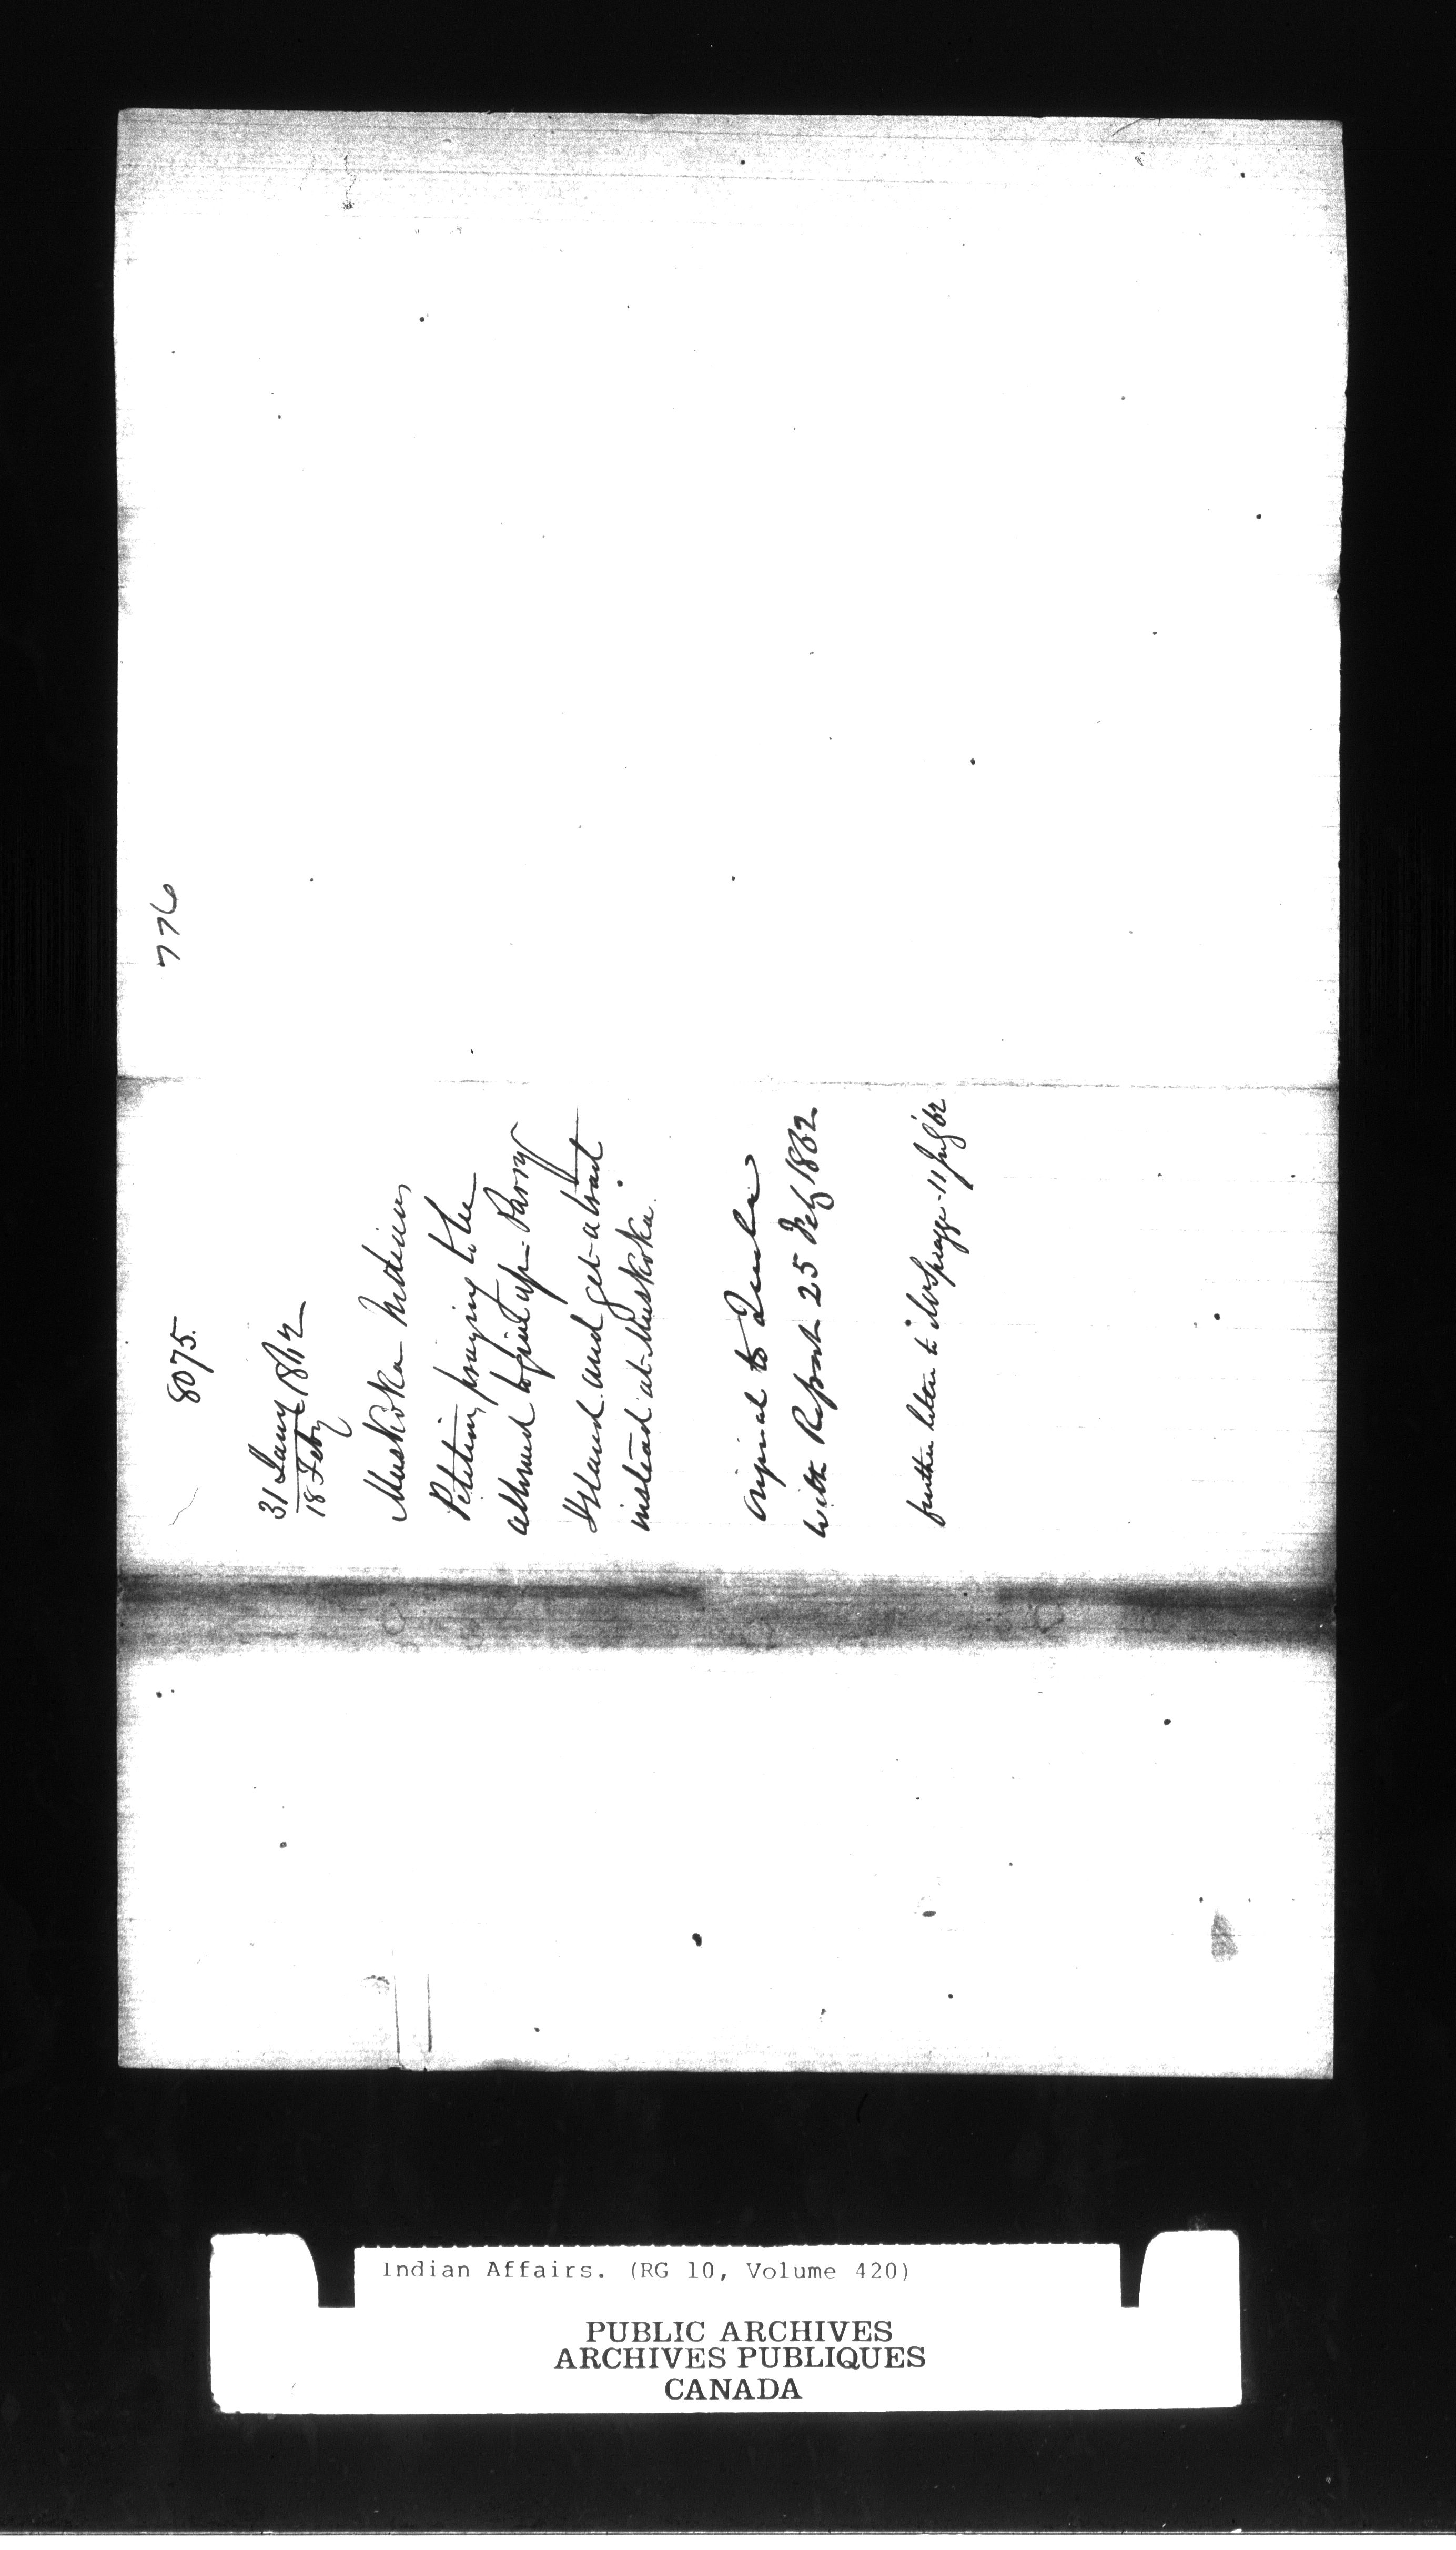 776
8075.
31 Jany 1862
18 Feby
Muskoka Indians
Petition praying to be
allowed to give up Parry
Island and get a tract
instead at Muskoka.
Original to Quebec
with Report 25 Feby 1862
further letter to Mr Spragge - 11 July '62
Indian Affairs. (RG 10, Volume 420)
PUBLIC ARCHIVES
ARCHIVES PUBLIQUES
CANADA